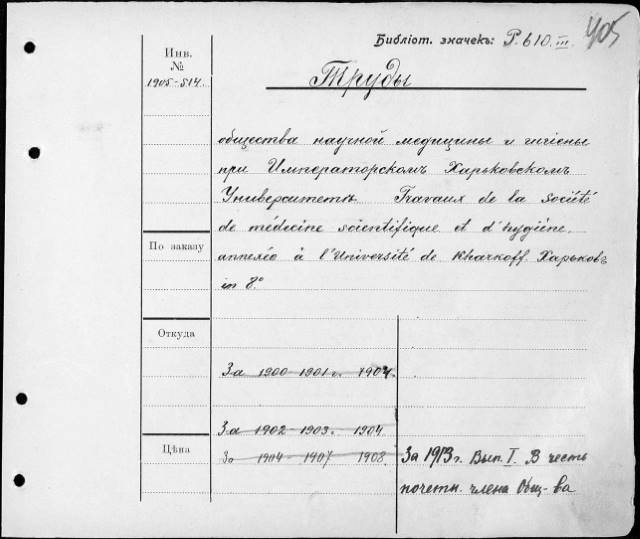 405
Библіот. значекъ: Р. 610. III.
Инв.
№
1905-514.
Труды
общества научной медицины и гигіены
при Императорскомъ Харьковскомъ
Университетѣ. Travaux de la Société
de médecine scientifique et d'hygiène,
annexée à l'Université de Kharkoff. Харьковъ
in 8°
По заказу
Откуда
За 1900-1901 г. 1902.
За 1902-1903. 1904
За 1904-1907 1908.
Цѣна
За 1913 г. Вып. I. В честь
почетн. члена Общ-ва